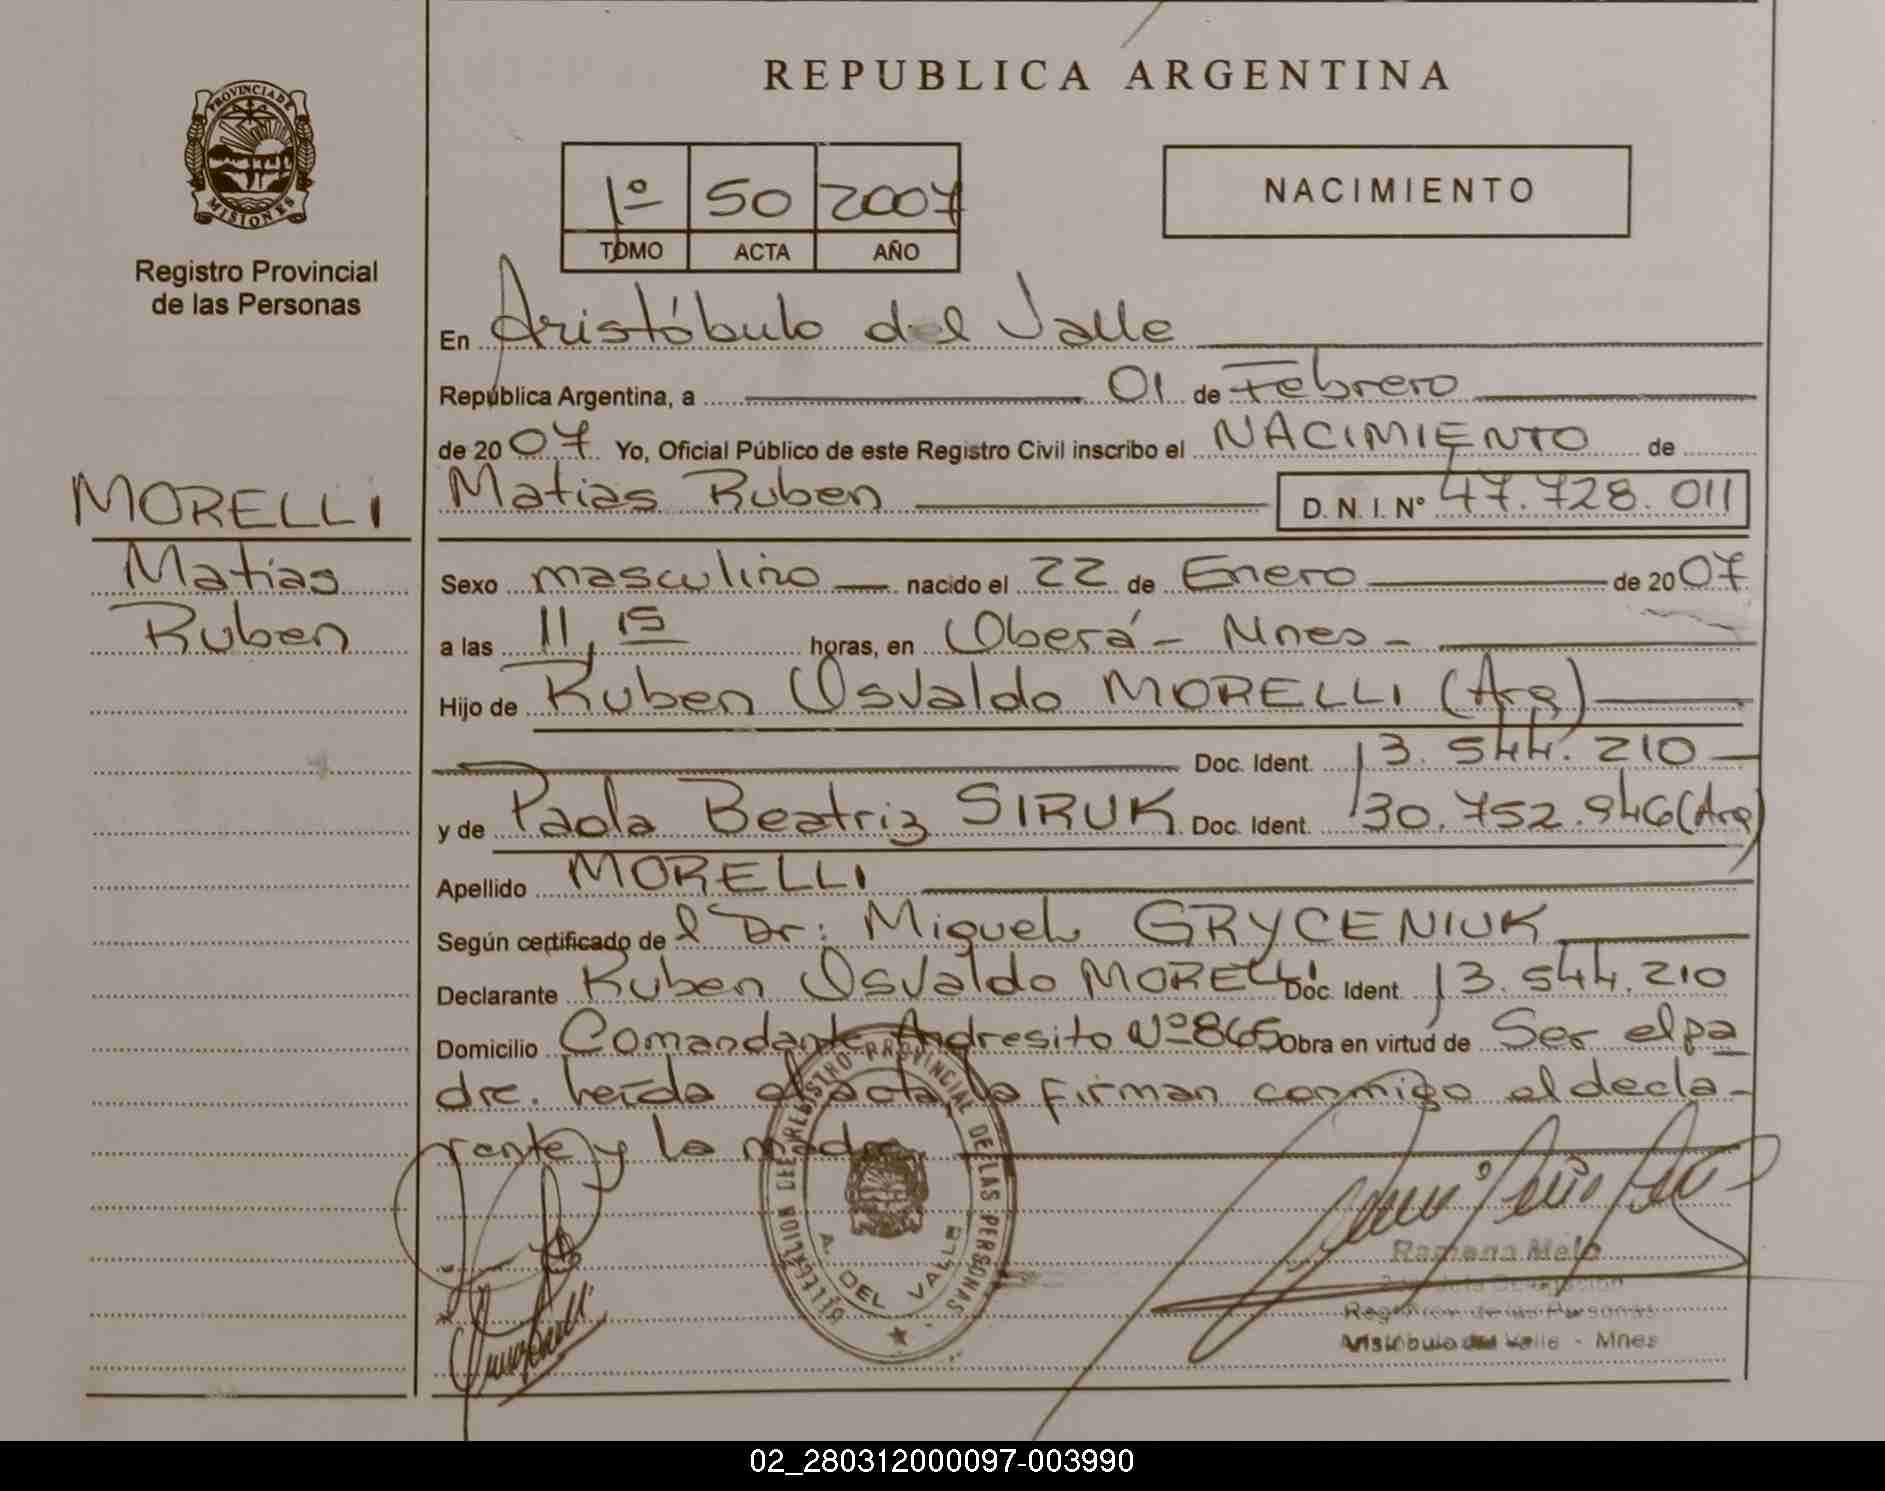 REPUBLICA ARGENTINA
PROVINCIA DE
MISIONES
Registro Provincial
de las Personas
1º 50 2007
TOMO ACTA AÑO
NACIMIENTO
En Aristóbulo del Valle
República Argentina, a 01 de Febrero
de 2007 Yo, Oficial Público de este Registro Civil inscribo el NACIMIENTO de
MORELLI
Matias
Ruben
Matias Ruben D. N. I. Nº 47.728.011
Sexo masculino nacido el 22 de Enero de 2007
a las 11,15 horas, en Oberá - Mnes -
Hijo de Ruben Osvaldo MORELLI (Arg)
Doc. Ident. 13.544.210
y de Paola Beatriz SIRUK Doc. Ident. 30.752.946 (Arg)
Apellido MORELLI
Según certificado de l Dr: Miguel GRYCENIUK
Declarante Ruben Osvaldo MORELLI Doc. Ident. 13.544.210
Domicilio Comandante Andresito Nº 865 Obra en virtud de Ser el pa
dre. Leída el acta, la firman conmigo el decla-
rante y la madre.
DELEGACION DEL REGISTRO PROVINCIAL DE LAS PERSONAS
A. DEL VALLE
Ramona Melo
de las Personas
Aristóbulo del Valle - Mnes
02_280312000097-003990